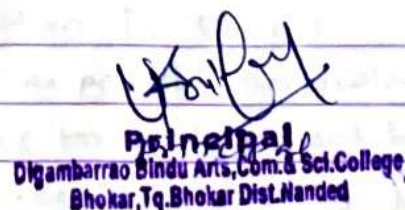 Principal
Digambarrao Bindu Arts,Com.& Sci.College,
Bhokar,Tq.Bhokar Dist.Nanded